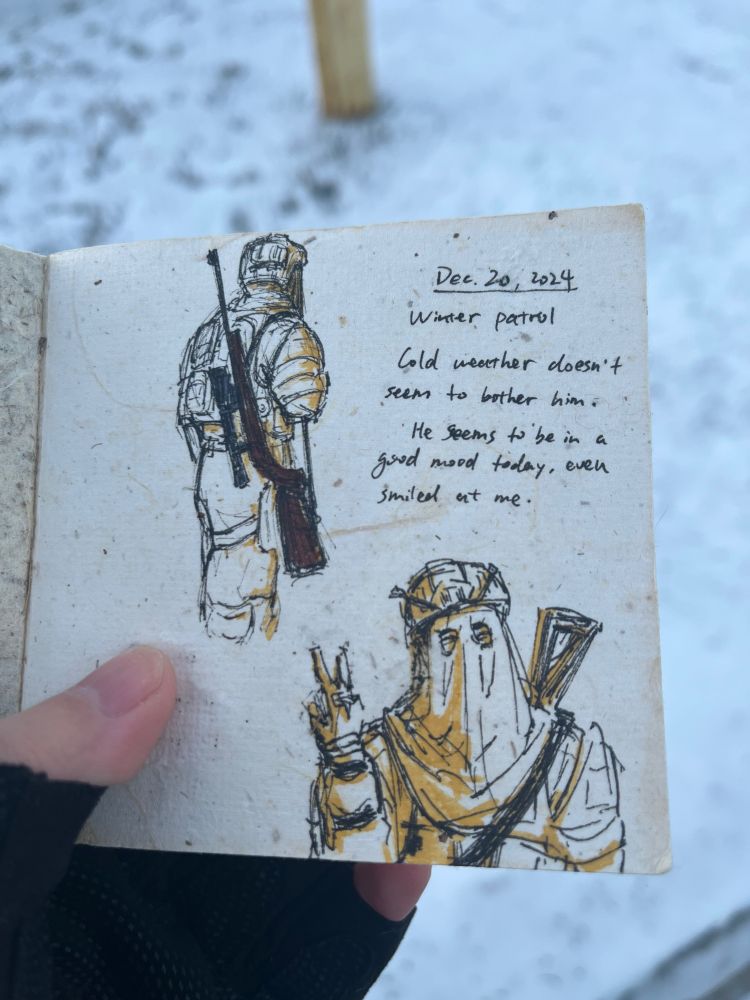 Dec. 20, 2024
Winter patrol
Cold weather doesn't
seem to bother him.
He seems to be in a
good mood today, even
smiled at me.